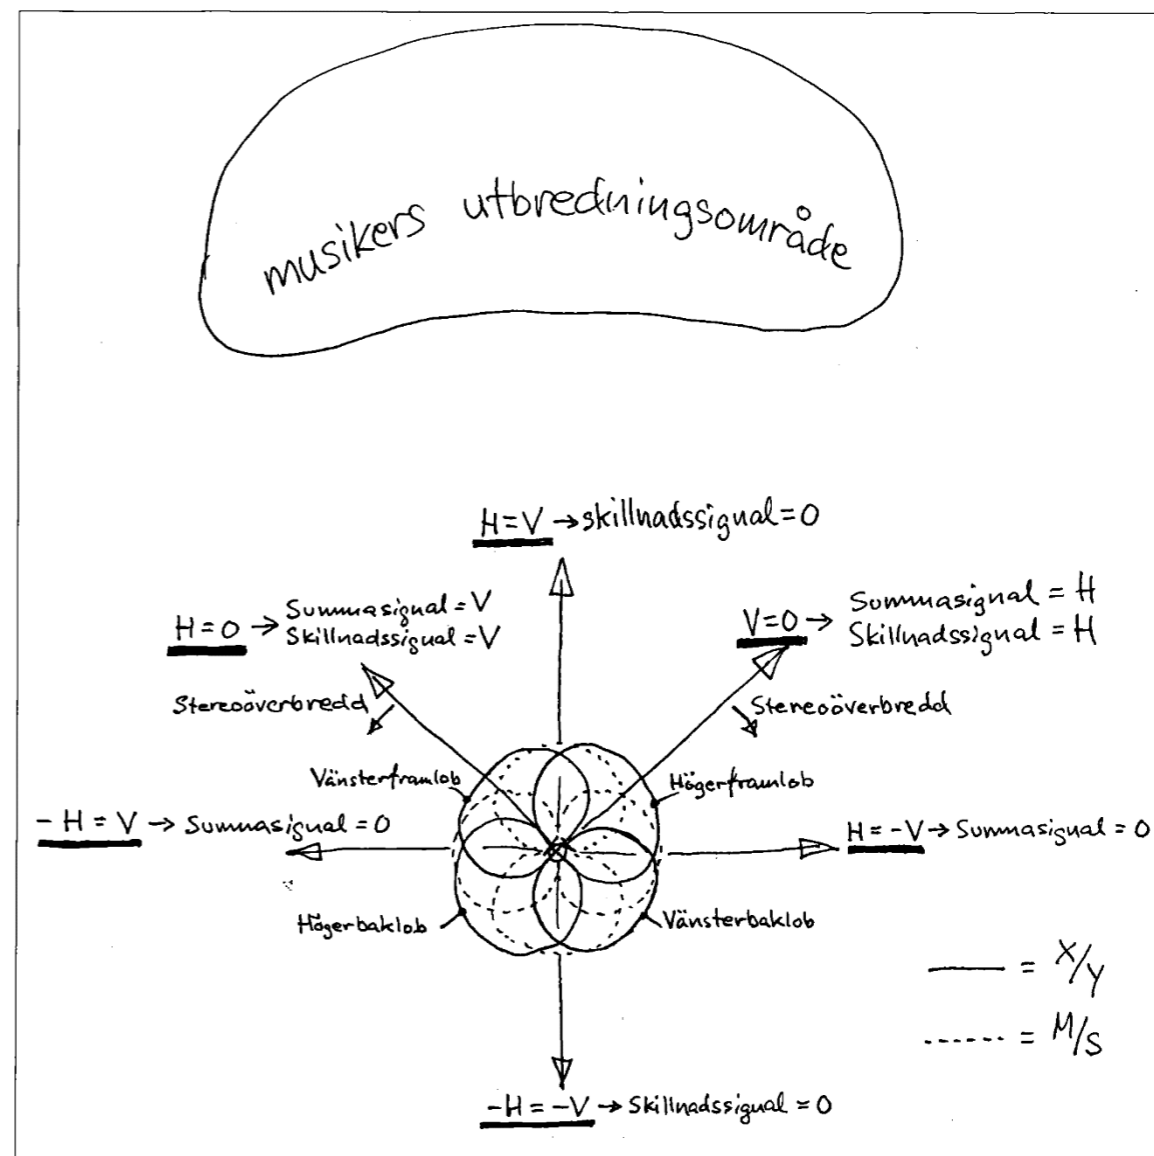 musikers utbredningsområde
H=V → skillnadssignal=0
H=0 → Summasignal=V
Skillnadssignal=V
V=0 → Summasignal = H
Skillnadssignal = H
Stereoöverbredd
Stereoöverbredd
Vänsterframlob
Högerframlob
-H=V → Summasignal=0
H=-V → Summasignal=0
Högerbaklob
Vänsterbaklob
= X/Y
= M/S
-H=-V → Skillnadssignal=0